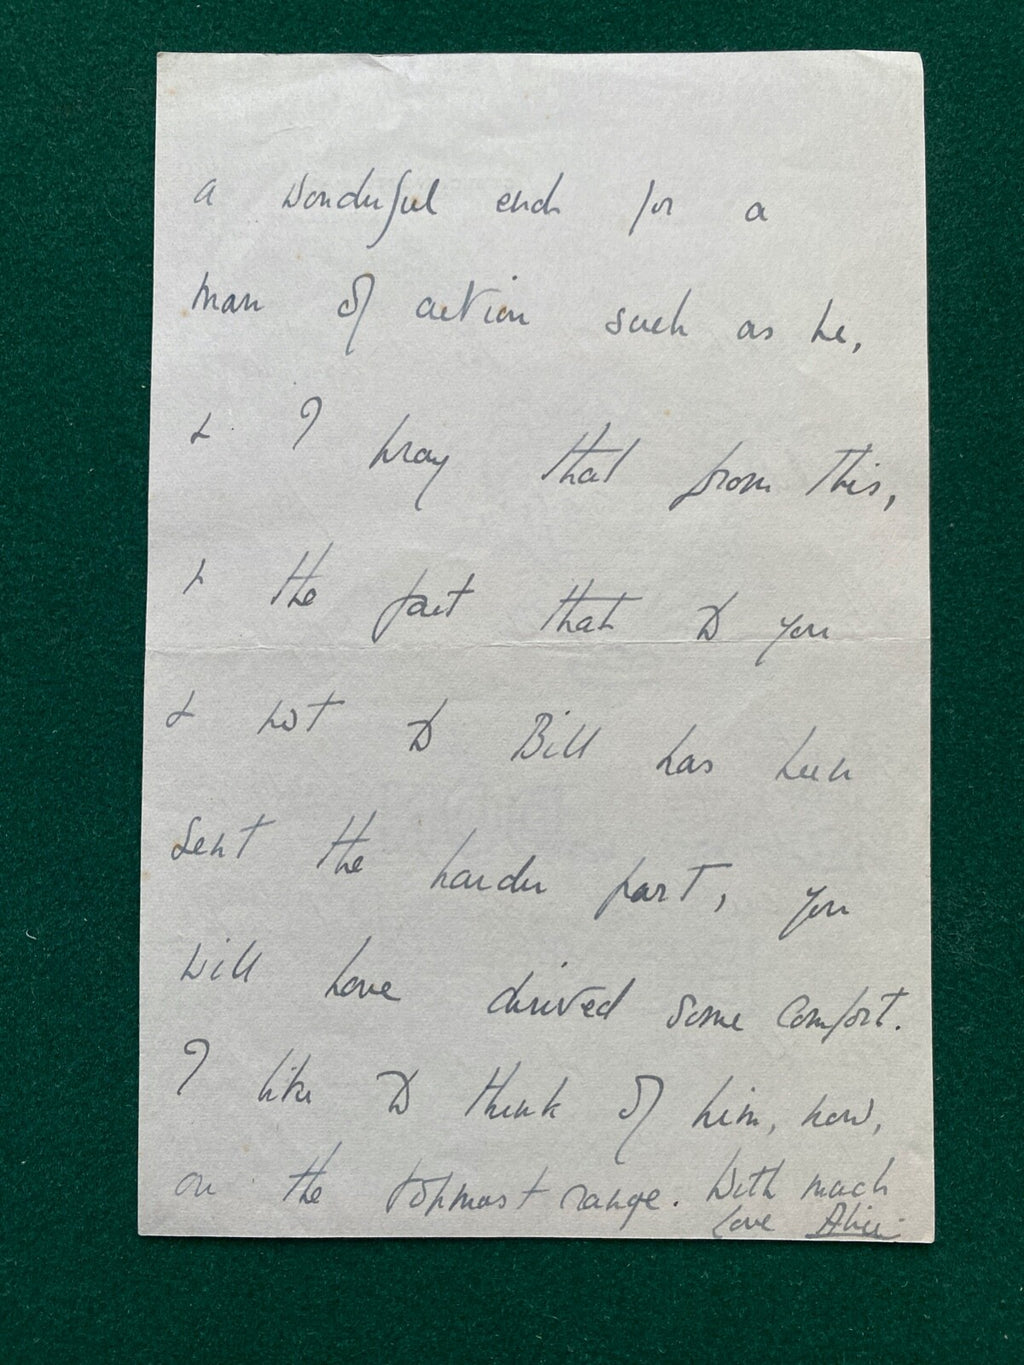 a wonderful end for a
man of action such as he,
& I pray that from this,
& the fact that to you
& not to Bill has been
sent the harder part, you
will have derived some comfort.
I like to think of him, now,
on the topmost range. With much
love Alice